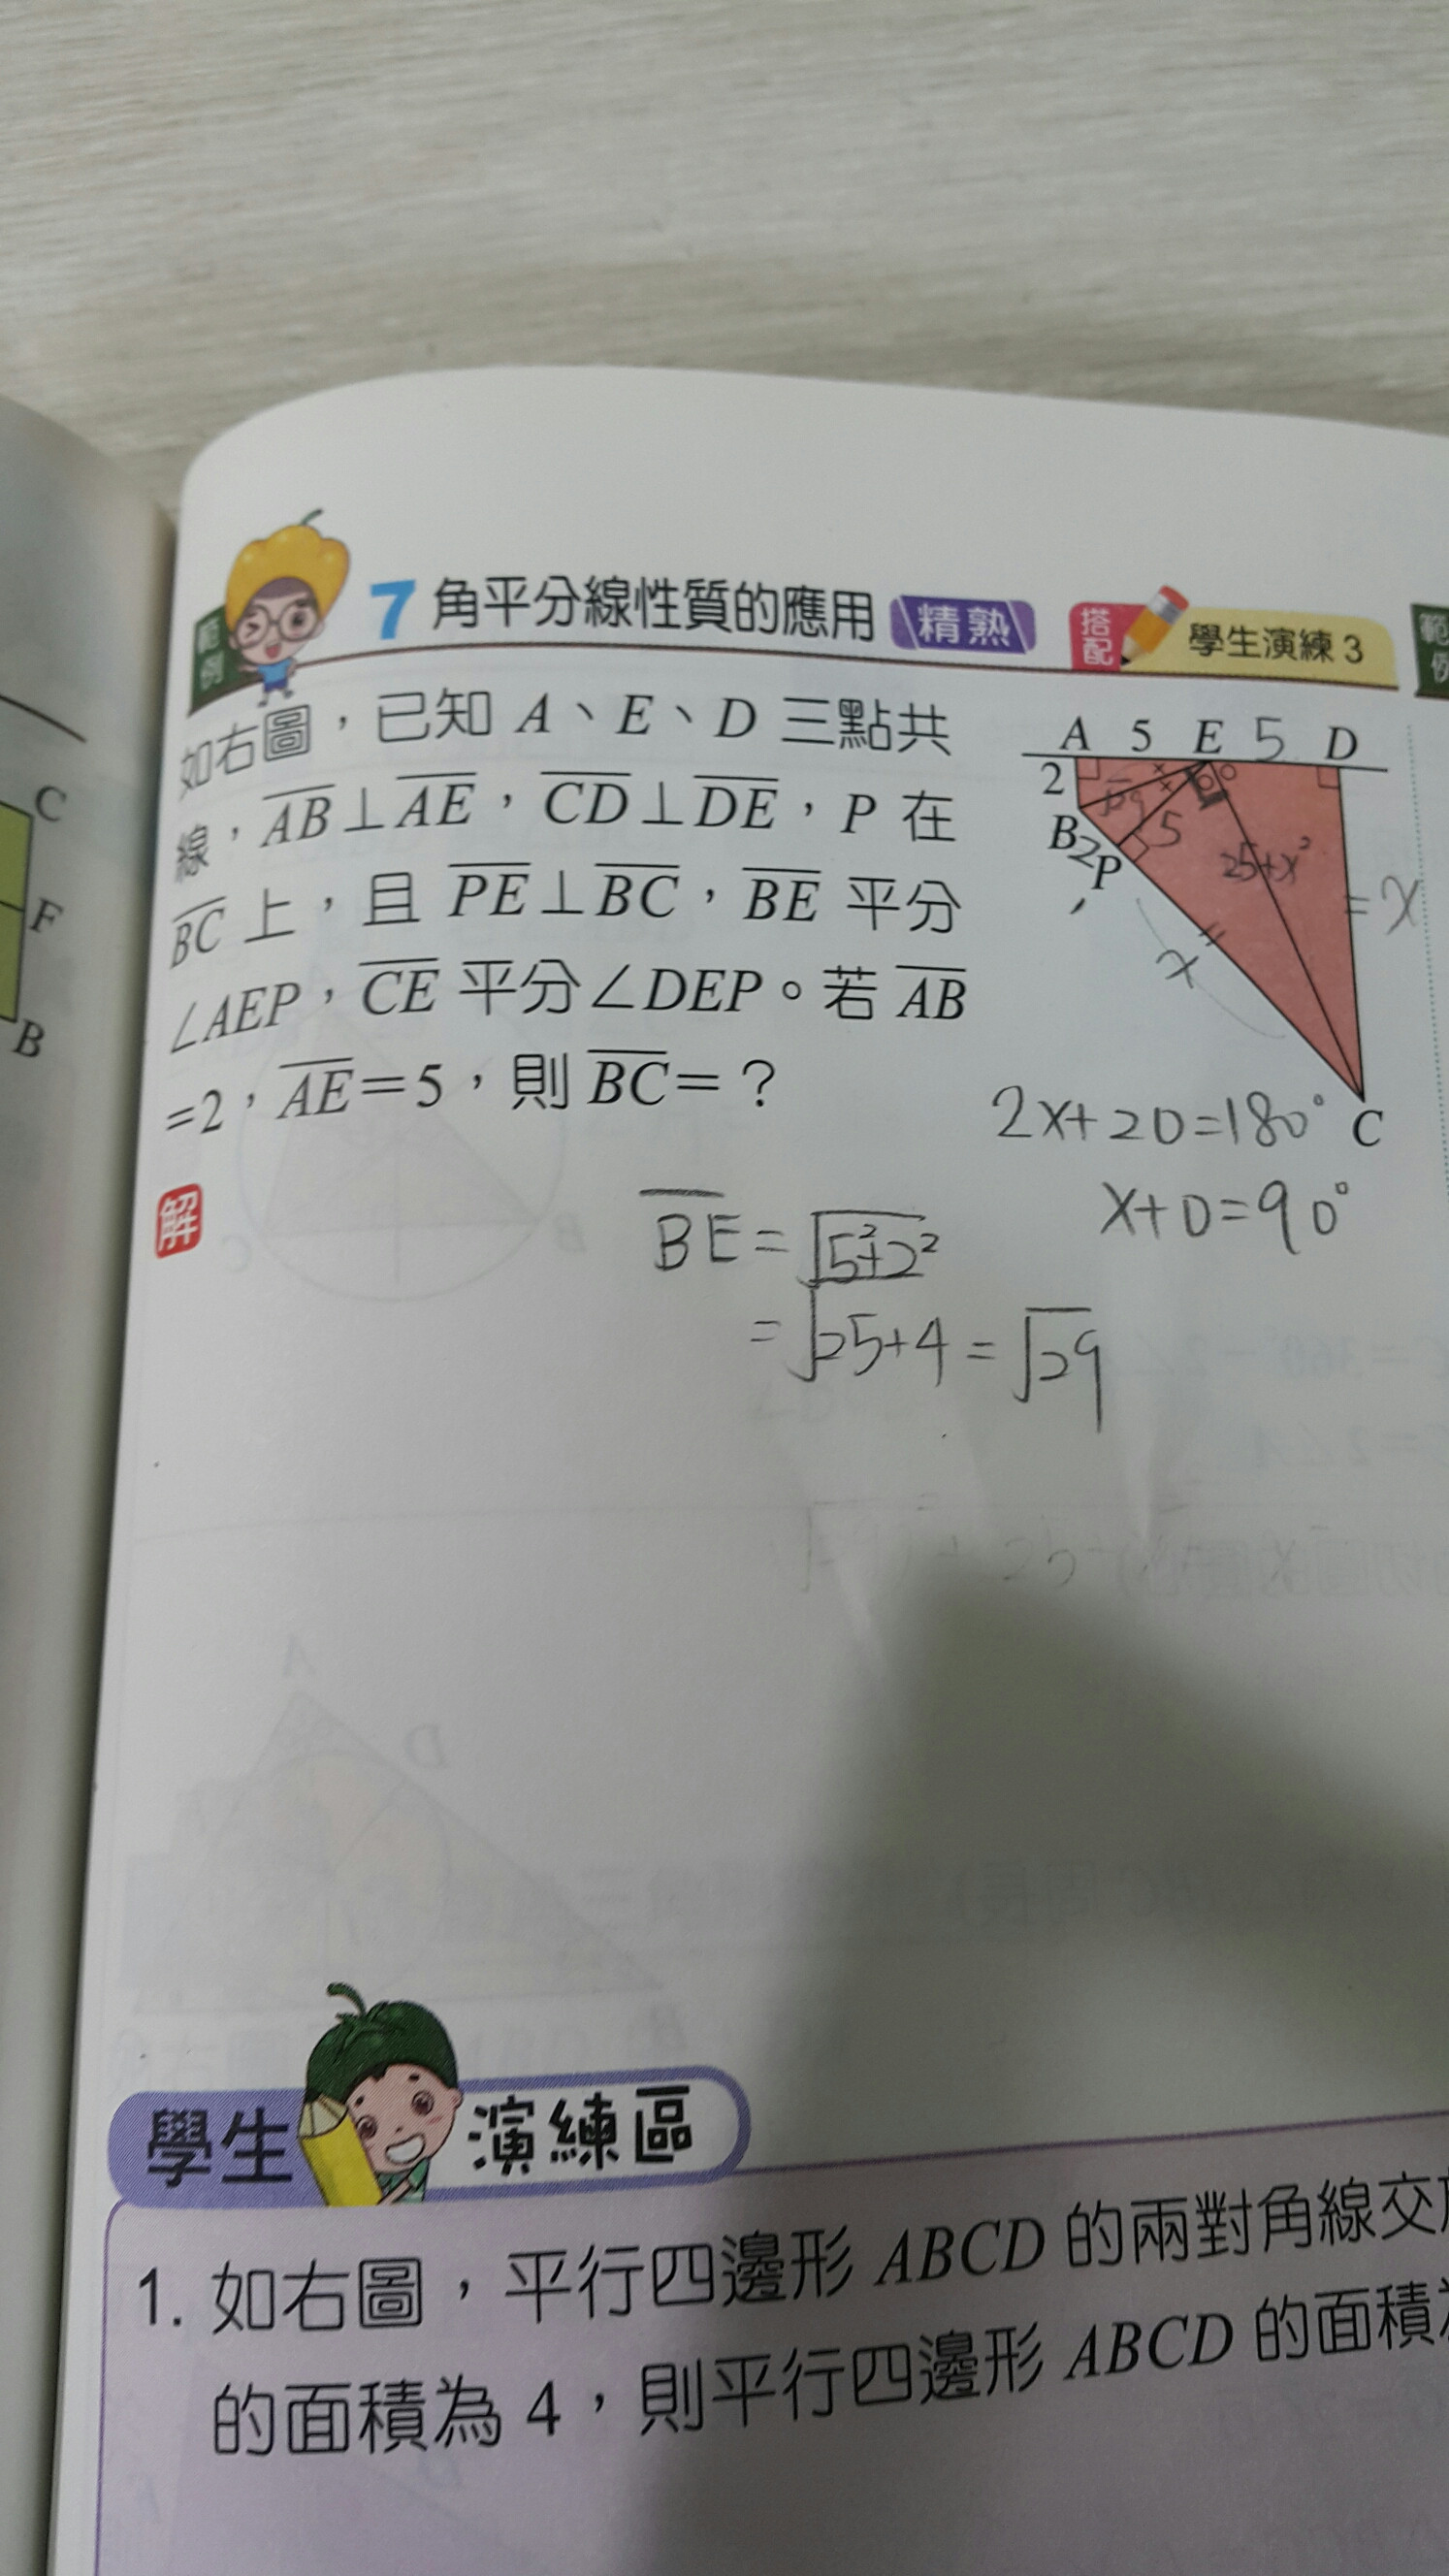 C
F
B
範例 7 角平分線性質的應用 精熟 搭配 學生演練 3
範例
如右圖，已知 A、E、D 三點共
線，AB⊥AE，CD⊥DE，P 在
BC 上，且 PE⊥BC，BE 平分
∠AEP，CE 平分∠DEP。若 AB
=2，AE=5，則 BC=？
A 5 E 5 D
2
B 2 P 5
25+x²
= x
x
C
2x+20=180°
x+0=90°
解
BE=√5²+2²
=√25+4=√29
學生演練區
1. 如右圖，平行四邊形 ABCD 的兩對角線交
的面積為 4，則平行四邊形 ABCD 的面積